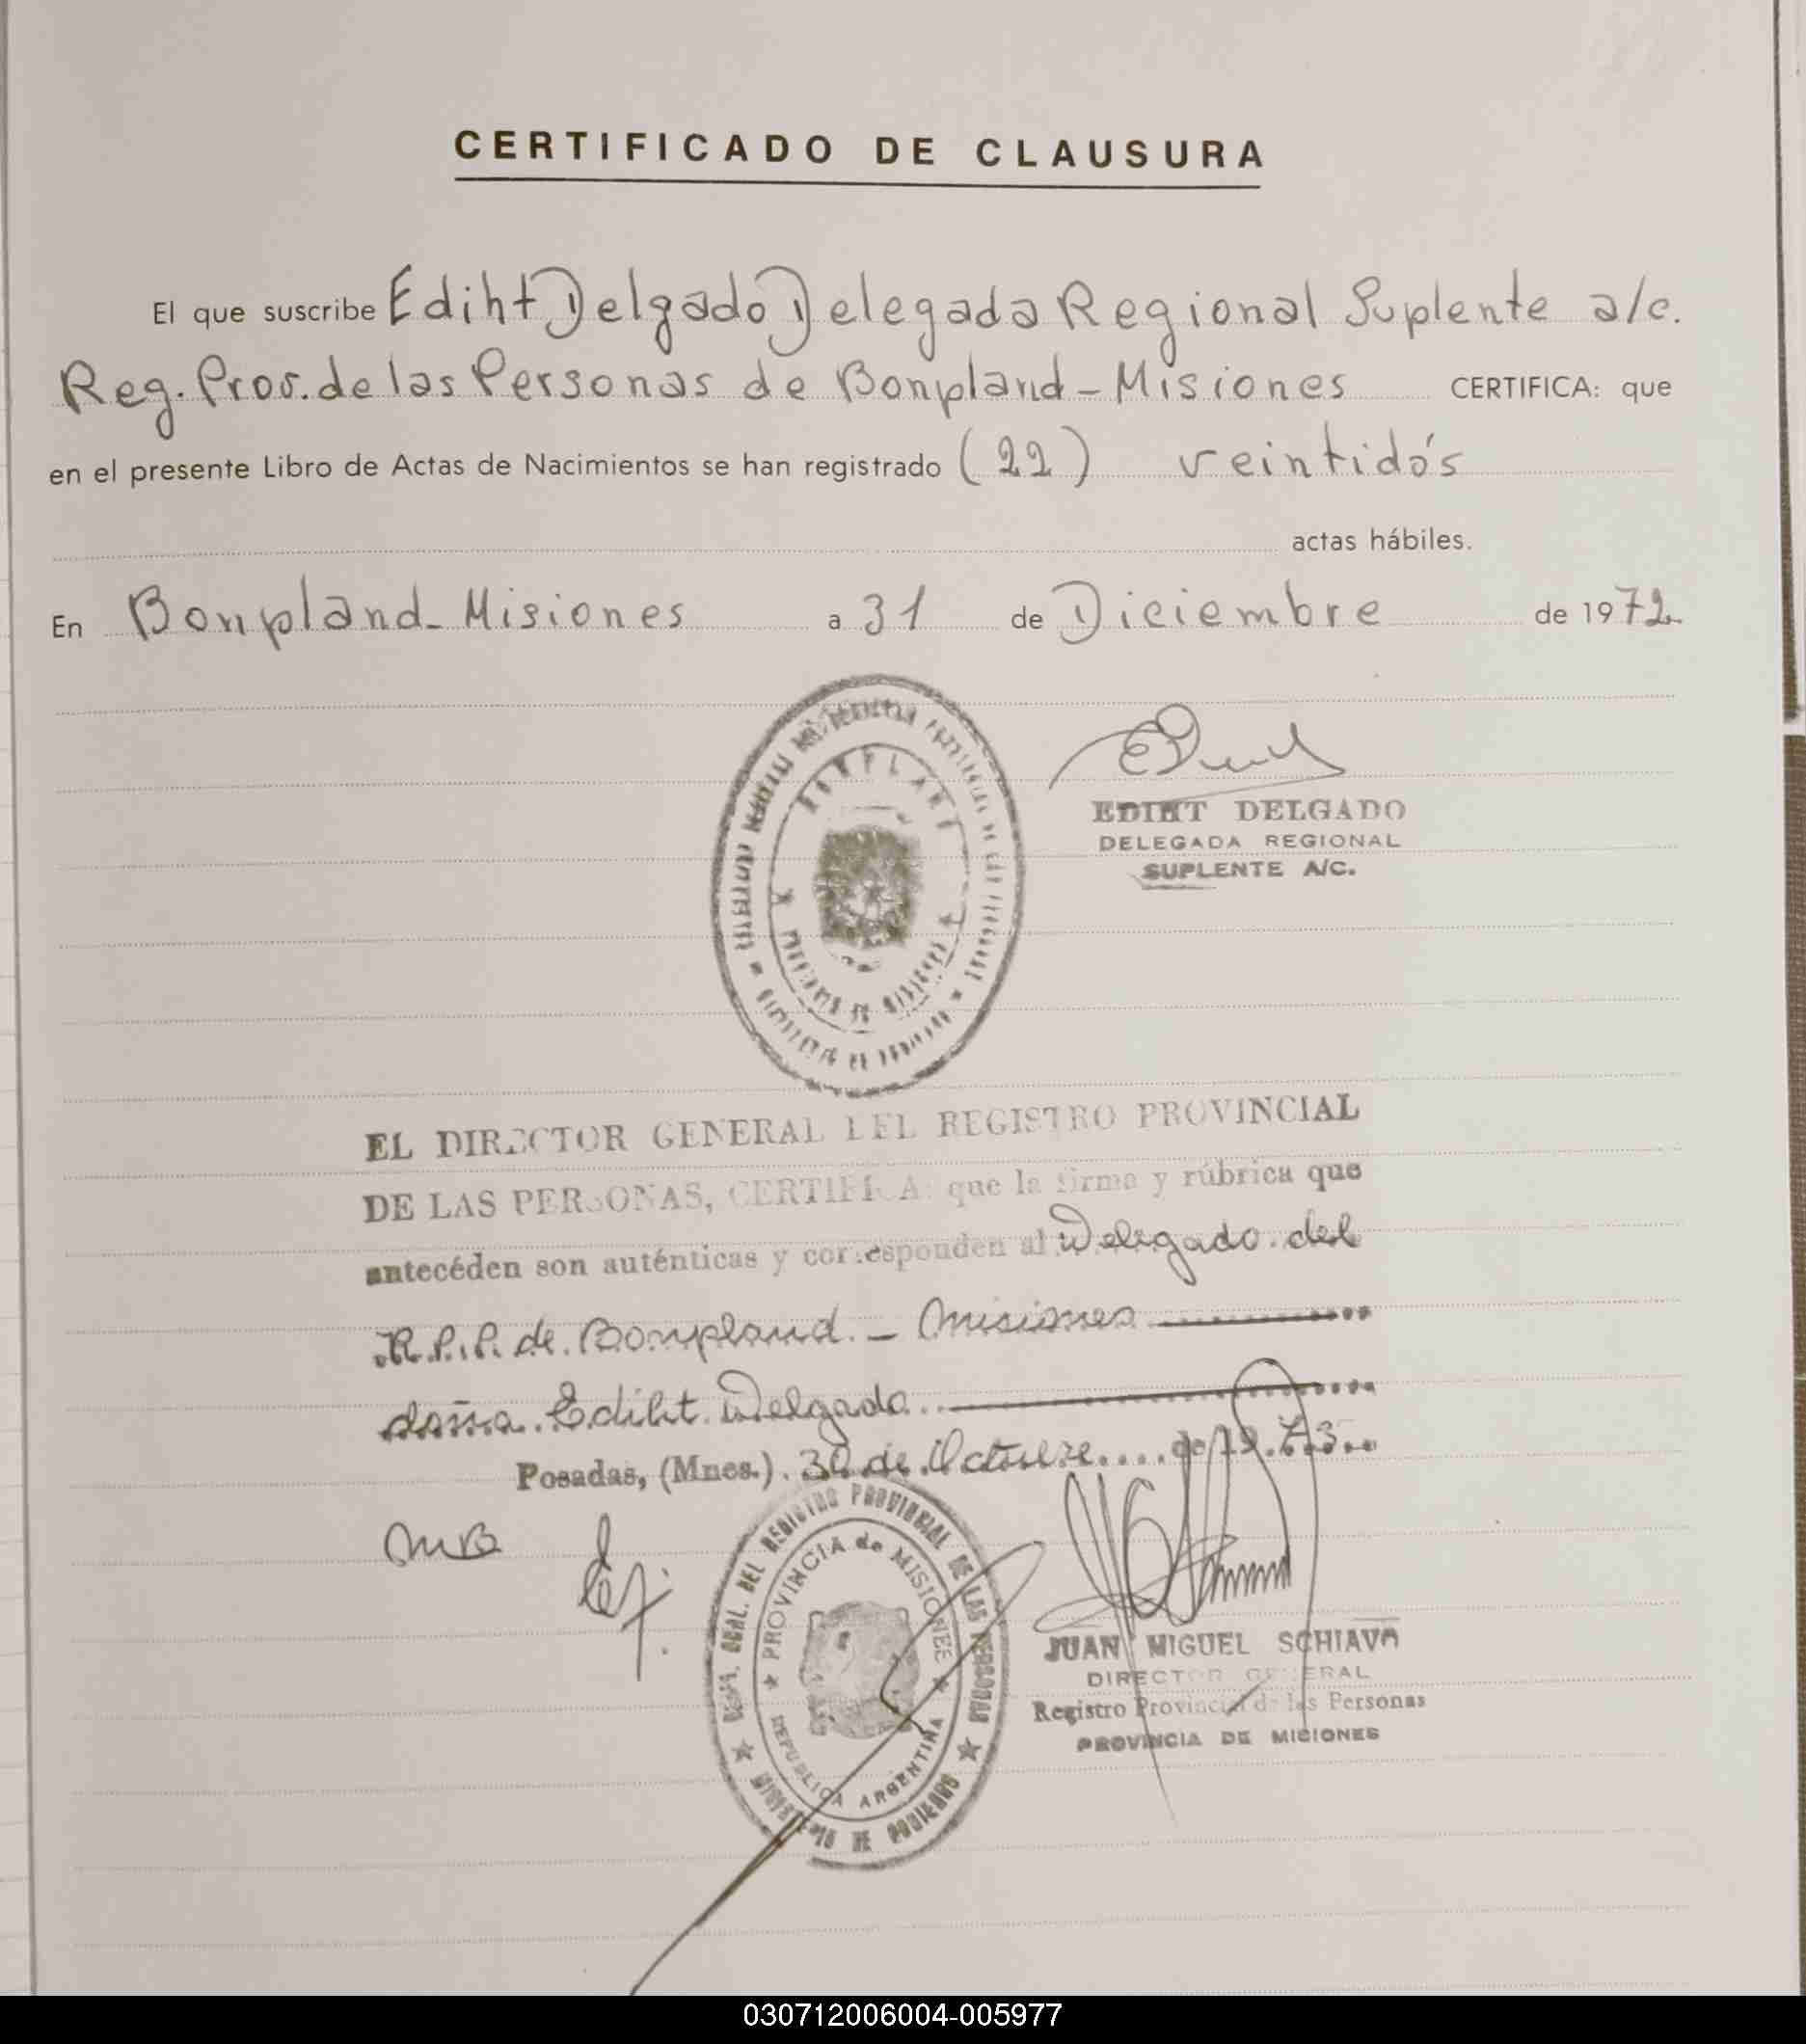 CERTIFICADO DE CLAUSURA
El que suscribe Ediht Delgado Delegada Regional Suplente a/c.
Reg. Prov. de las Personas de Bonpland - Misiones CERTIFICA: que
en el presente Libro de Actas de Nacimientos se han registrado (22) veintidós
actas hábiles.
En Bonpland - Misiones a 31 de Diciembre de 1972
BONPLAND
PROVINCIA DE MISIONES
EDIHT DELGADO
DELEGADA REGIONAL
SUPLENTE A/C.
EL DIRECTOR GENERAL DEL REGISTRO PROVINCIAL
DE LAS PERSONAS, CERTIFICA: que la firma y rúbrica que
antecéden son auténticas y corresponden al Delegado del
R.P.P. de Bonpland. - Misiones
doña Ediht Delgado
Posadas, (Mnes.) 30 de Octubre de 1973
DIR. GRAL. DEL REGISTRO PROVINCIAL DE LAS PERSONAS
PROVINCIA de MISIONES
REPUBLICA ARGENTINA
MINISTERIO DE GOBIERNO
JUAN MIGUEL SCHIAVA
DIRECTOR GENERAL
Registro Provincial de las Personas
PROVINCIA DE MISIONES
030712006004-005977